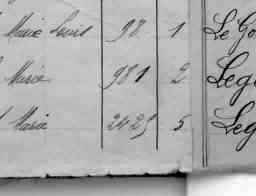 Marie Louis 98 1 Le Go
Marie 981 2 Leg
Marie 2425 5 Leg